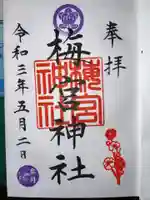 奉拝
梅宮神社
梅宮神社
令和三年五月二日